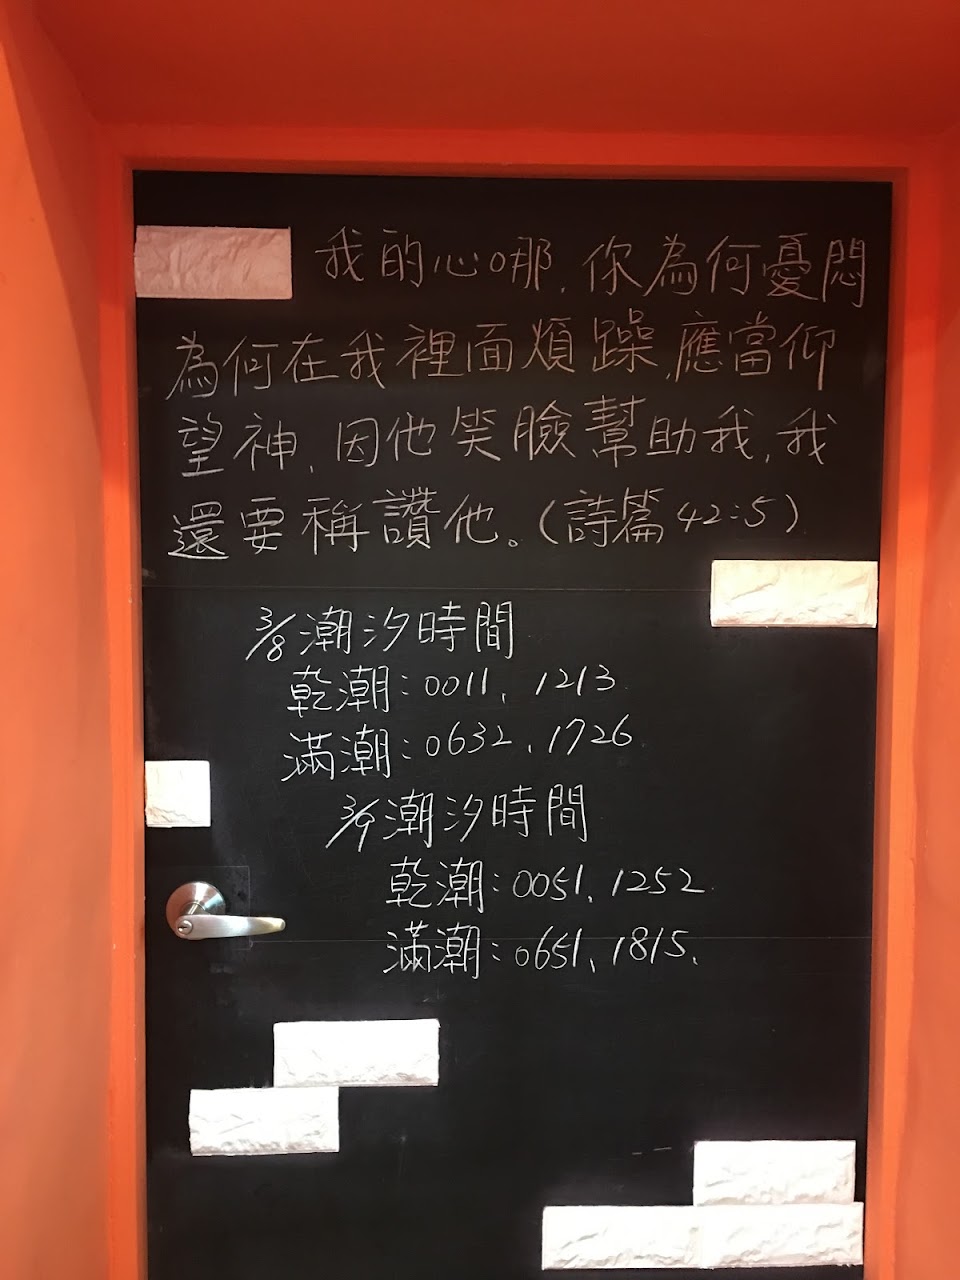 我的心哪,你為何憂悶
為何在我裡面煩躁,應當仰
望神,因他笑臉幫助我,我
還要稱讚他。(詩篇42:5)
3/8潮汐時間
乾潮:0011、1213
滿潮:0632、1726
3/9潮汐時間
乾潮:0051、1252
滿潮:0651、1815、